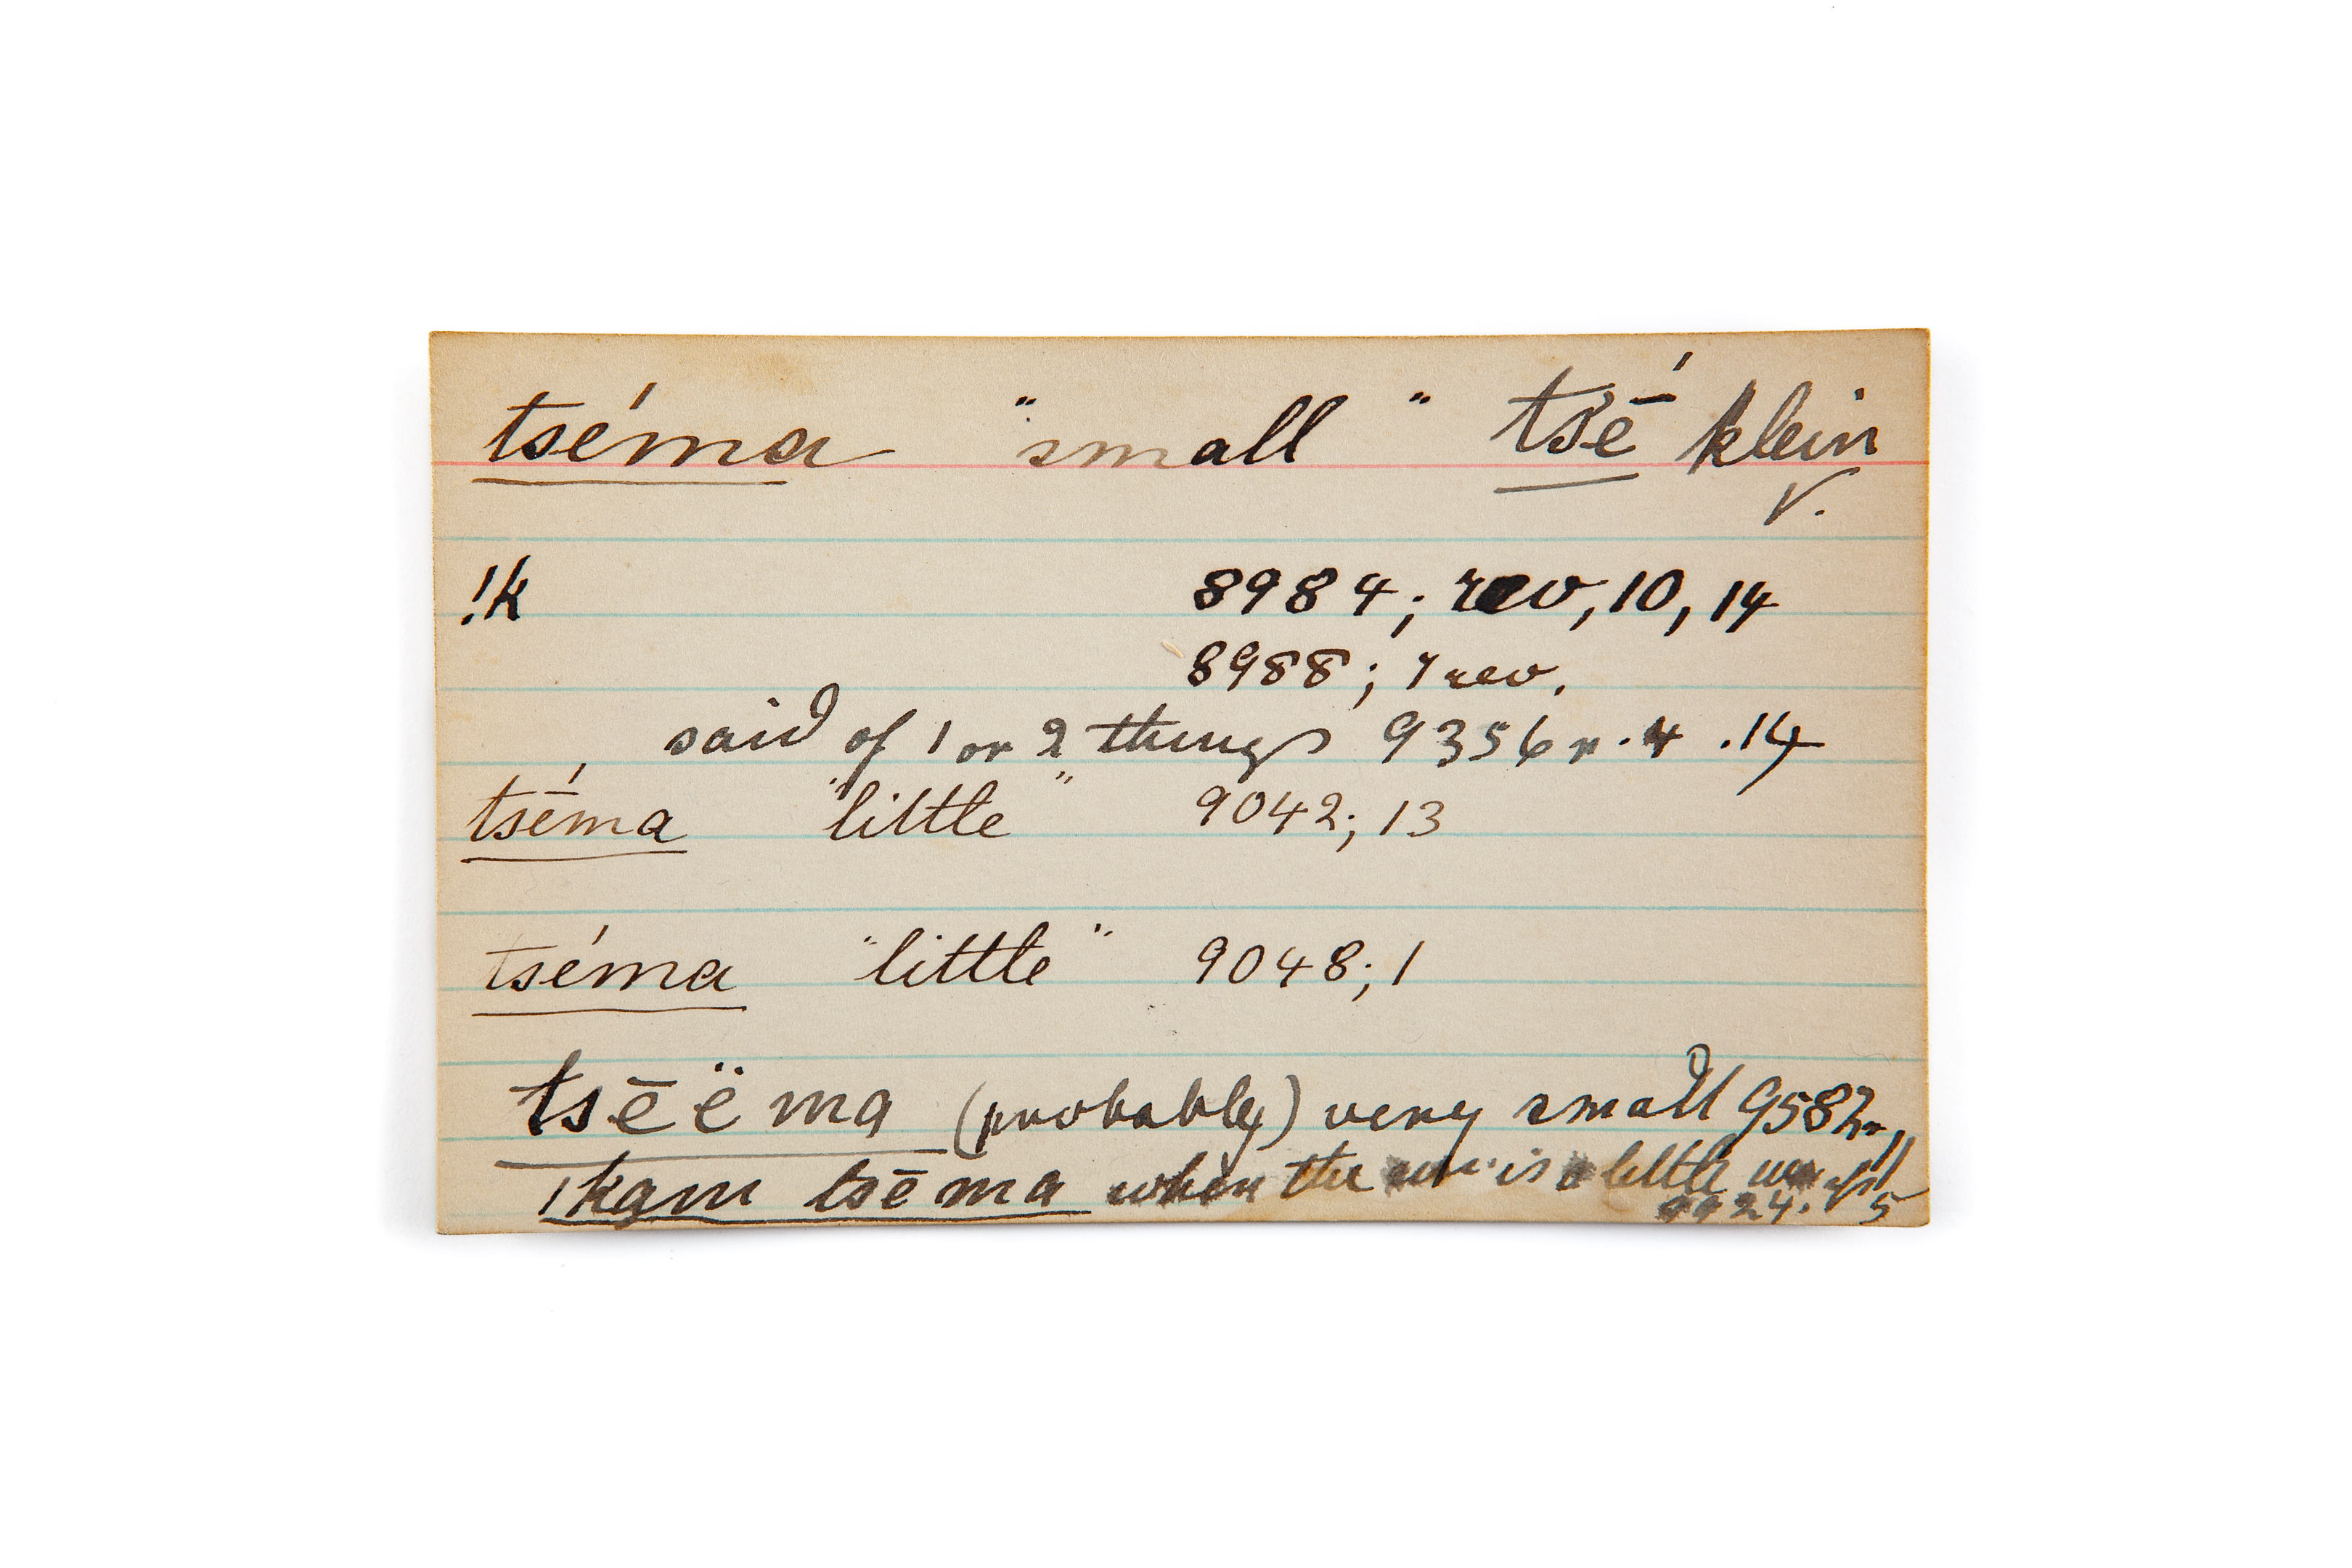 tséma "small" tsḗ klein
V.
!k 8984; rev, 10, 14
8988; 7 rev.
said of 1 or 2 things 9356 r. 4 .14
tsḗma "little" 9042; 13
tséma "little" 9048; 1
tsēëma (probably) very small 9582 r, 11
ǀkam tsēma when the is a little 9924. 5